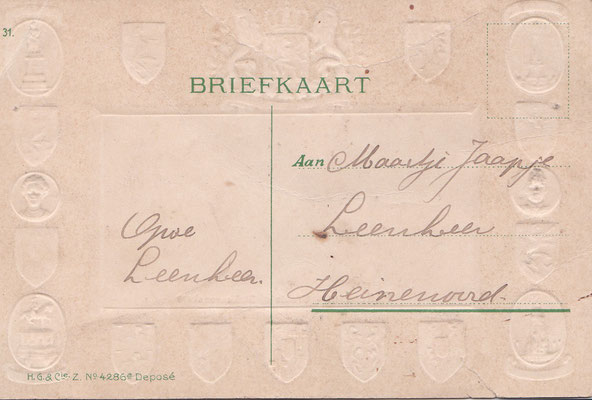 31.
BRIEFKAART
Aan Maartje Jaapje
Leenheer
Heinenoord.
Opoe
Leenheer.
H.G.& Cie Z. No 4286e Deposé